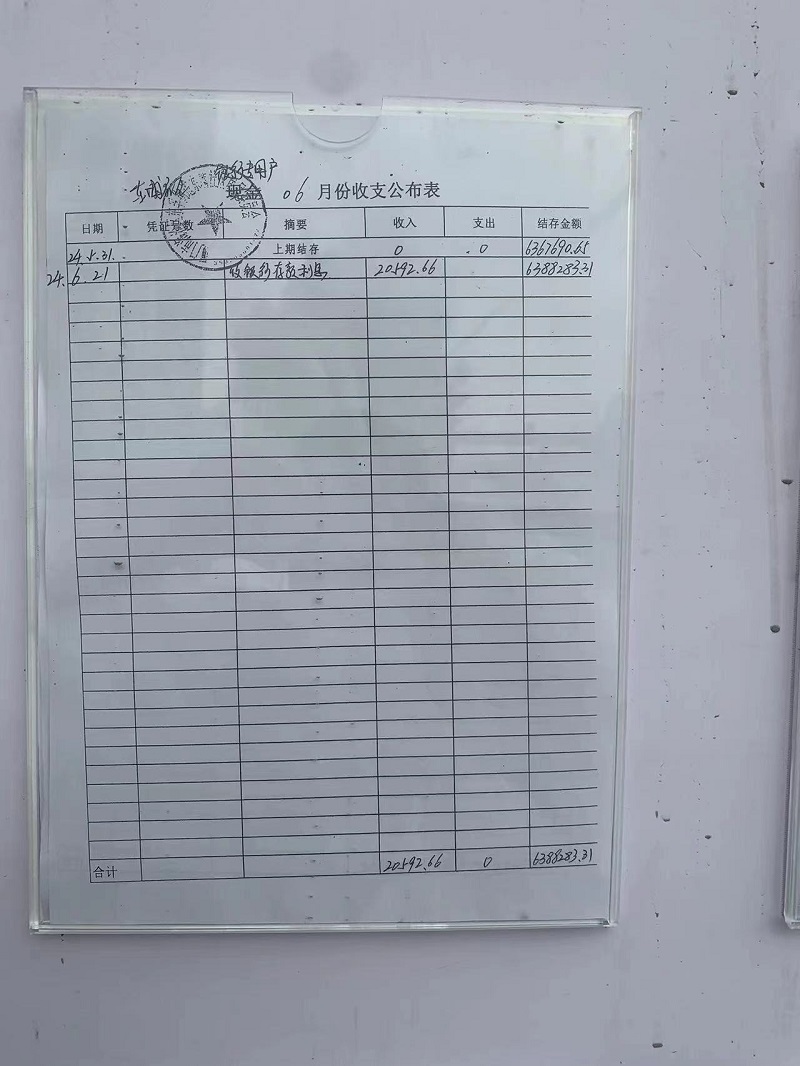 专用户
现金 06 月份收支公布表
日期 凭证号数 摘要 收入 支出 结存金额
24.5.31. 上期结存 0 0 6367690.65
24.6.21 收银行存款利息 20592.66 6388283.31
合计 20592.66 0 6388283.31